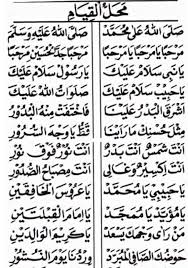 مَحَلُّ الْقِيَامِ
صَلَّى اللهُ عَلَى مُحَمَّدْ صَلَّى اللهُ عَلَيْهِ وَسَلَّمَ
مَرْحَبًا يَا مَرْحَبًا يَا مَرْحَبًا مَرْحَبًا جَدَّ الْحُسَيْنِ مَرْحَبًا
يَا نَبِي سَلَامْ عَلَيْكَ يَا رَسُوْلْ سَلَامْ عَلَيْكَ
يَا حَبِيْبْ سَلَامْ عَلَيْكَ صَلَوَاتُ اللهْ عَلَيْكَ
أَشْرَقَ الْبَدْرُ عَلَيْنَا فَاخْتَفَتْ مِنْهُ الْبُدُوْرُ
مِثْلَ حُسْنِكَ مَا رَأَيْنَا قَطُّ يَا وَجْهَ السُّرُوْرِ
أَنْتَ شَمْسٌ أَنْتَ بَدْرٌ أَنْتَ نُوْرٌ فَوْقَ نُوْرِ
أَنْتَ إِكْسِيْرٌ وَغَالِي أَنْتَ مِصْبَاحُ الصُّدُوْرِ
يَا حَبِيْبِي يَا مُحَمَّدْ يَا عَرُوْسَ الْخَافِقَيْنِ
يَا مُؤَيَّدْ يَا مُمَجَّدْ يَا إِمَامَ الْقِبْلَتَيْنِ
مَنْ رَأَى وَجْهَكَ يَسْعَدْ يَا كَرِيْمَ الْوَالِدَيْنِ
حَوْضُكَ الصَّافِي الْمُبَرَّدْ وِرْدُنَا يَوْمَ النُّشُوْرِ